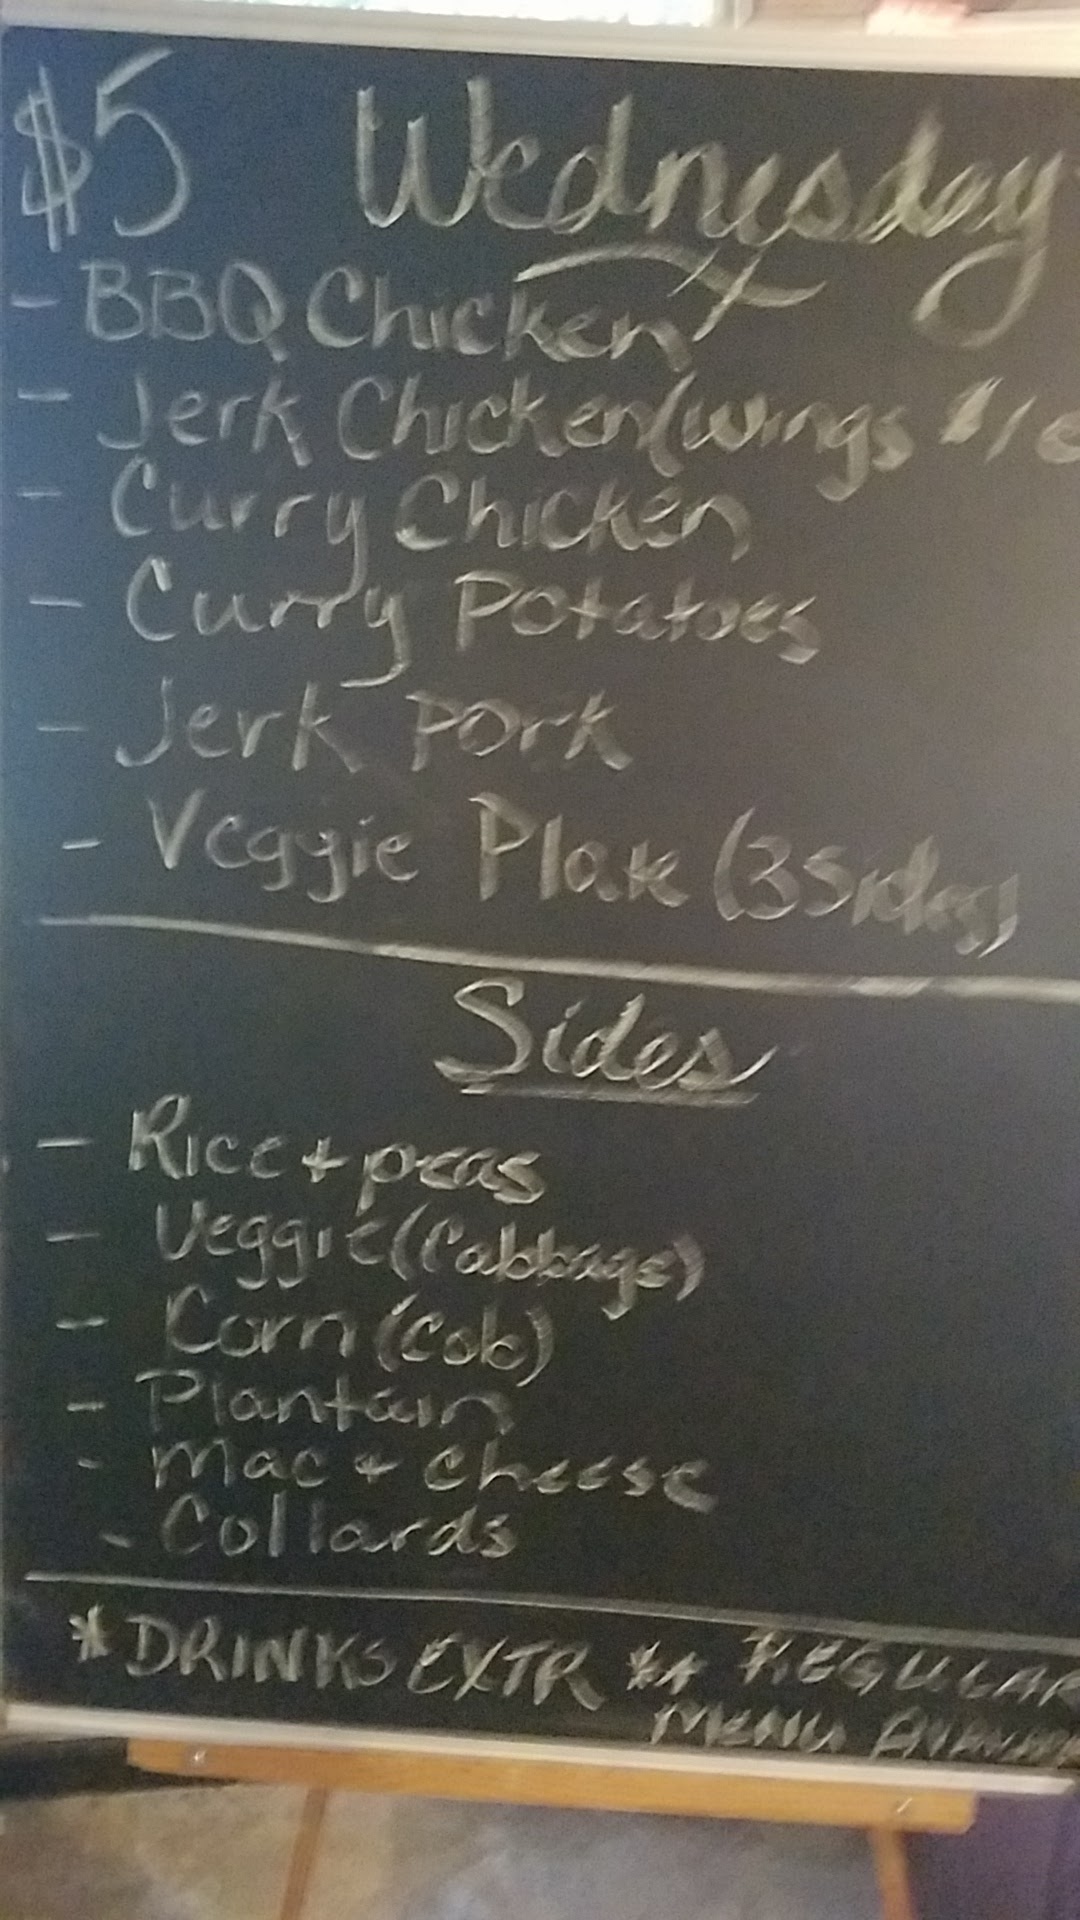 $5 Wednesday
- BBQ Chicken
- Jerk Chicken (wings
- Curry Chicken
- Curry Potatoes
- Jerk Pork
- Veggie Plate (3 Sides)
Sides
- Rice + peas
- Veggie (Cabbage)
- Corn (Cob)
- Plantain
- Mac + Cheese
- Collards
* DRINKS EXTR ** REGULAR
MENU